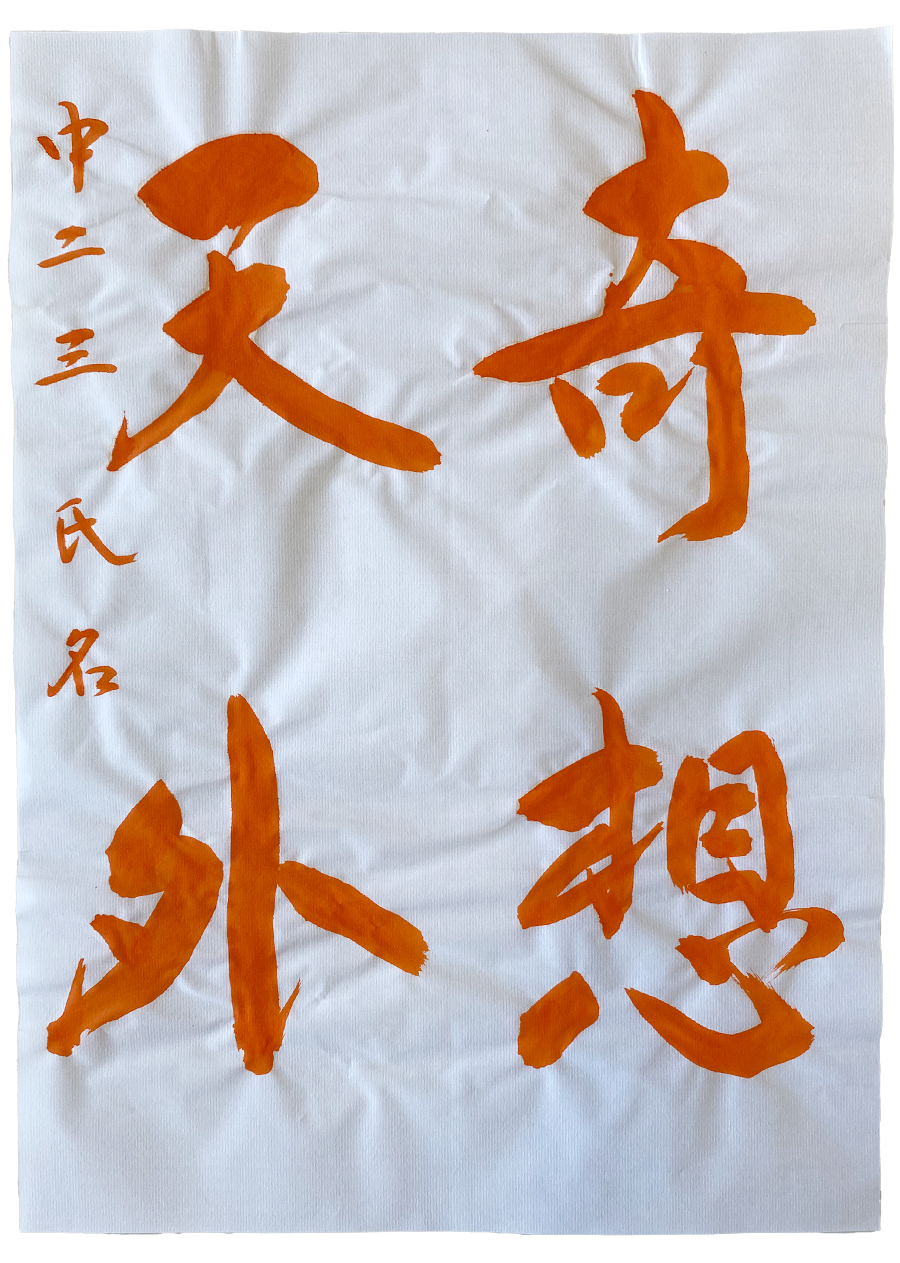 奇想
天外
中二三氏名